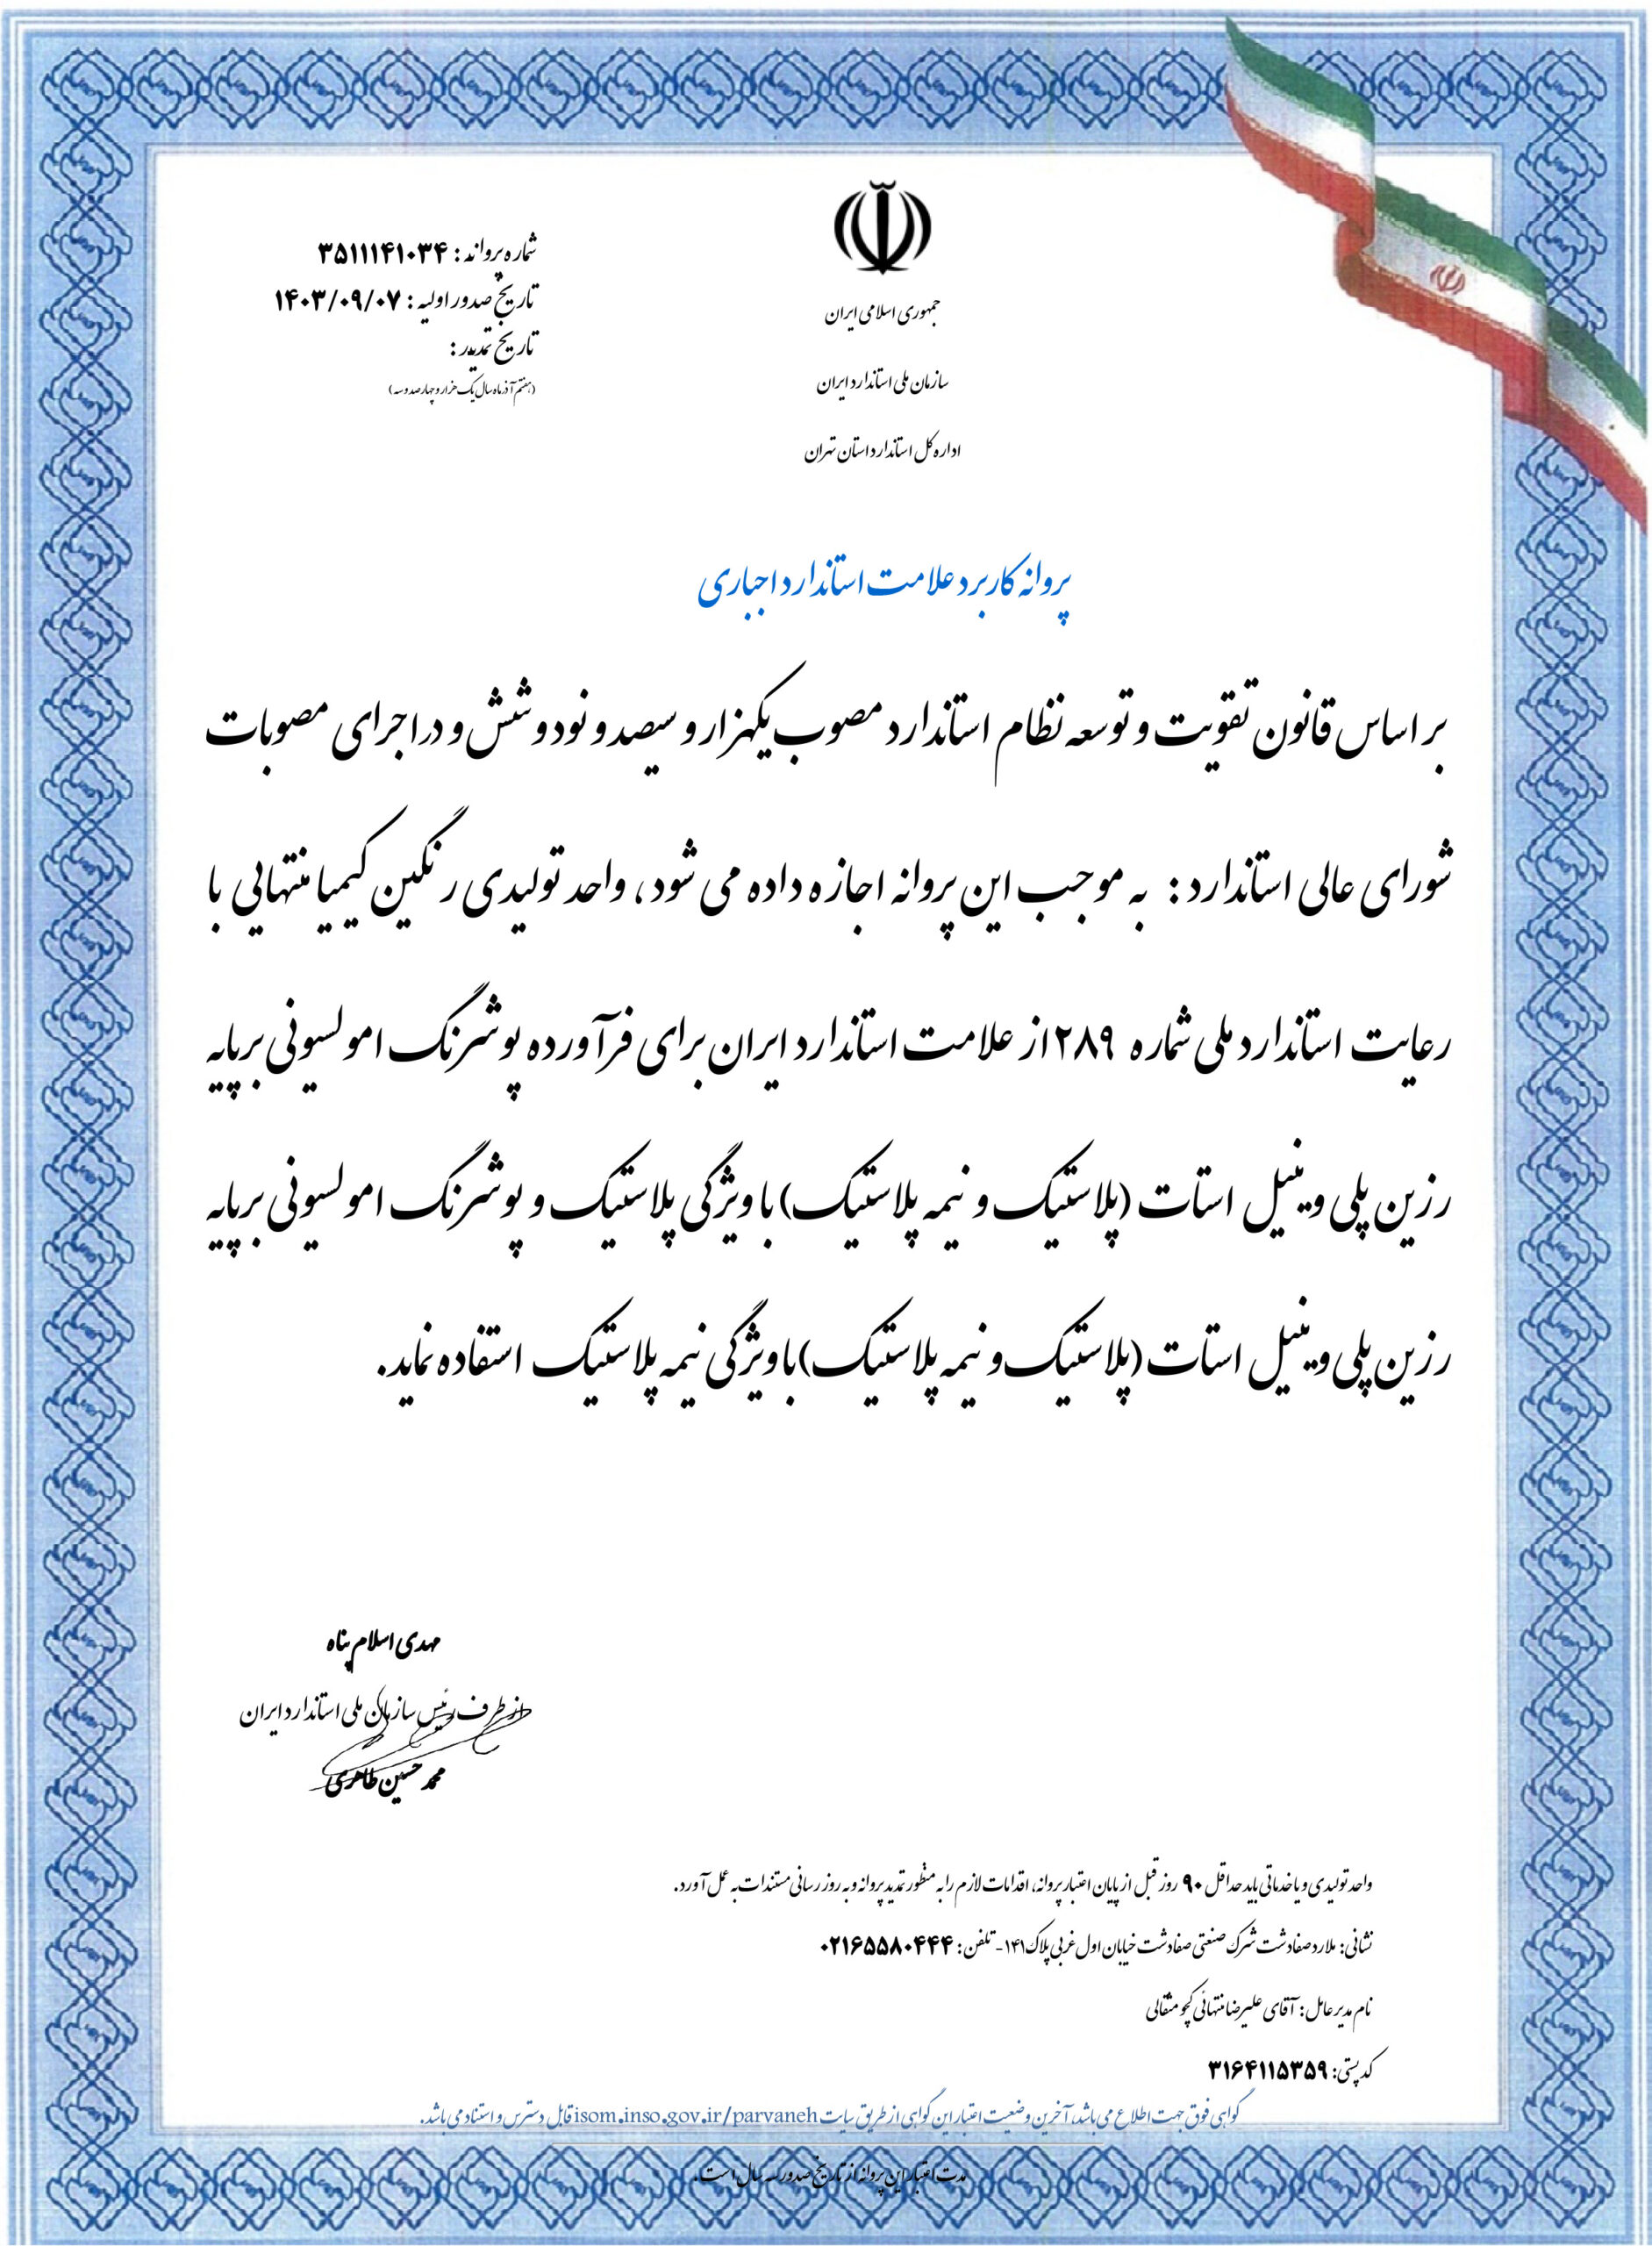 جمهوری اسلامی ایران
سازمان ملی استاندارد ایران
اداره کل استاندارد استان تهران
شماره پروانه : ۳۵۱۱۱۴۱۰۳۴
تاریخ صدور اولیه : ۱۴۰۳/۰۹/۰۷
تاریخ تمدید :
(هفتم آذر ماه سال یک هزار و چهارصد و سه)
پروانه کاربرد علامت استاندارد اجباری
بر اساس قانون تقویت و توسعه نظام استاندارد مصوب یکهزار و سیصد و نود و شش و در اجرای مصوبات
شورای عالی استاندارد : به موجب این پروانه اجازه داده می شود، واحد تولیدی رنگین کیمیا منتهایی با
رعایت استاندارد ملی شماره ۲۸۹ از علامت استاندارد ایران برای فرآورده پوشرنگ امولسیونی برپایه
رزین پلی وینیل استات (پلاستیک و نیمه پلاستیک) با ویژگی پلاستیک و پوشرنگ امولسیونی برپایه
رزین پلی وینیل استات (پلاستیک و نیمه پلاستیک) با ویژگی نیمه پلاستیک استفاده نماید.
مهدی اسلام پناه
از طرف رئیس سازمان ملی استاندارد ایران
محمد حسین طاهری
واحد تولیدی و یا خدماتی باید حداقل ۹۰ روز قبل از پایان اعتبار پروانه، اقدامات لازم را به منظور تمدید پروانه و به روز رسانی مستندات به عمل آورد.
نشانی: ملارد صفادشت شهرک صنعتی صفادشت خیابان اول غربی پلاک ۱۴۱ - تلفن: ۰۲۱۶۵۵۸۰۴۴۴
نام مدیر عامل : آقای علیرضا منتهائی کچومثقالی
کد پستی: ۳۱۶۴۱۱۵۳۵۹
گواهی فوق جهت اطلاع می باشد، آخرین وضعیت اعتبار این گواهی از طریق سایت isom.inso.gov.ir/parvaneh قابل دسترس و استناد می باشد.
مدت اعتبار این پروانه از تاریخ صدور سه سال است.